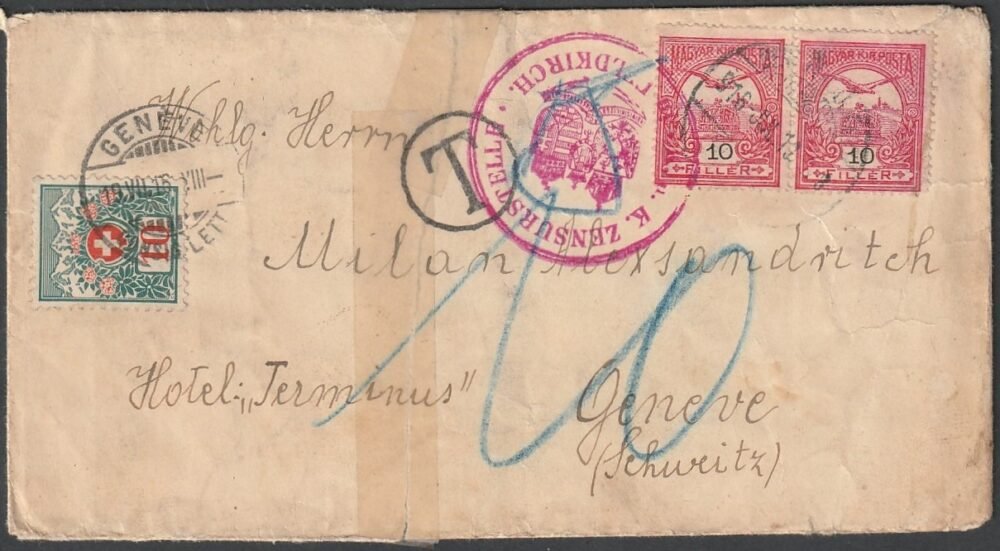 MAGYAR KIR. POSTA
10
FILLÉR
MAGYAR KIR. POSTA
10
FILLÉR
K. ZENSURSTELLE FELDKIRCH.
T
GENÈVE
VIII
10
Wohlg. Herrn
Milan Alexsandritch
Hotel „Terminus"
Geneve
(Schweitz)
10